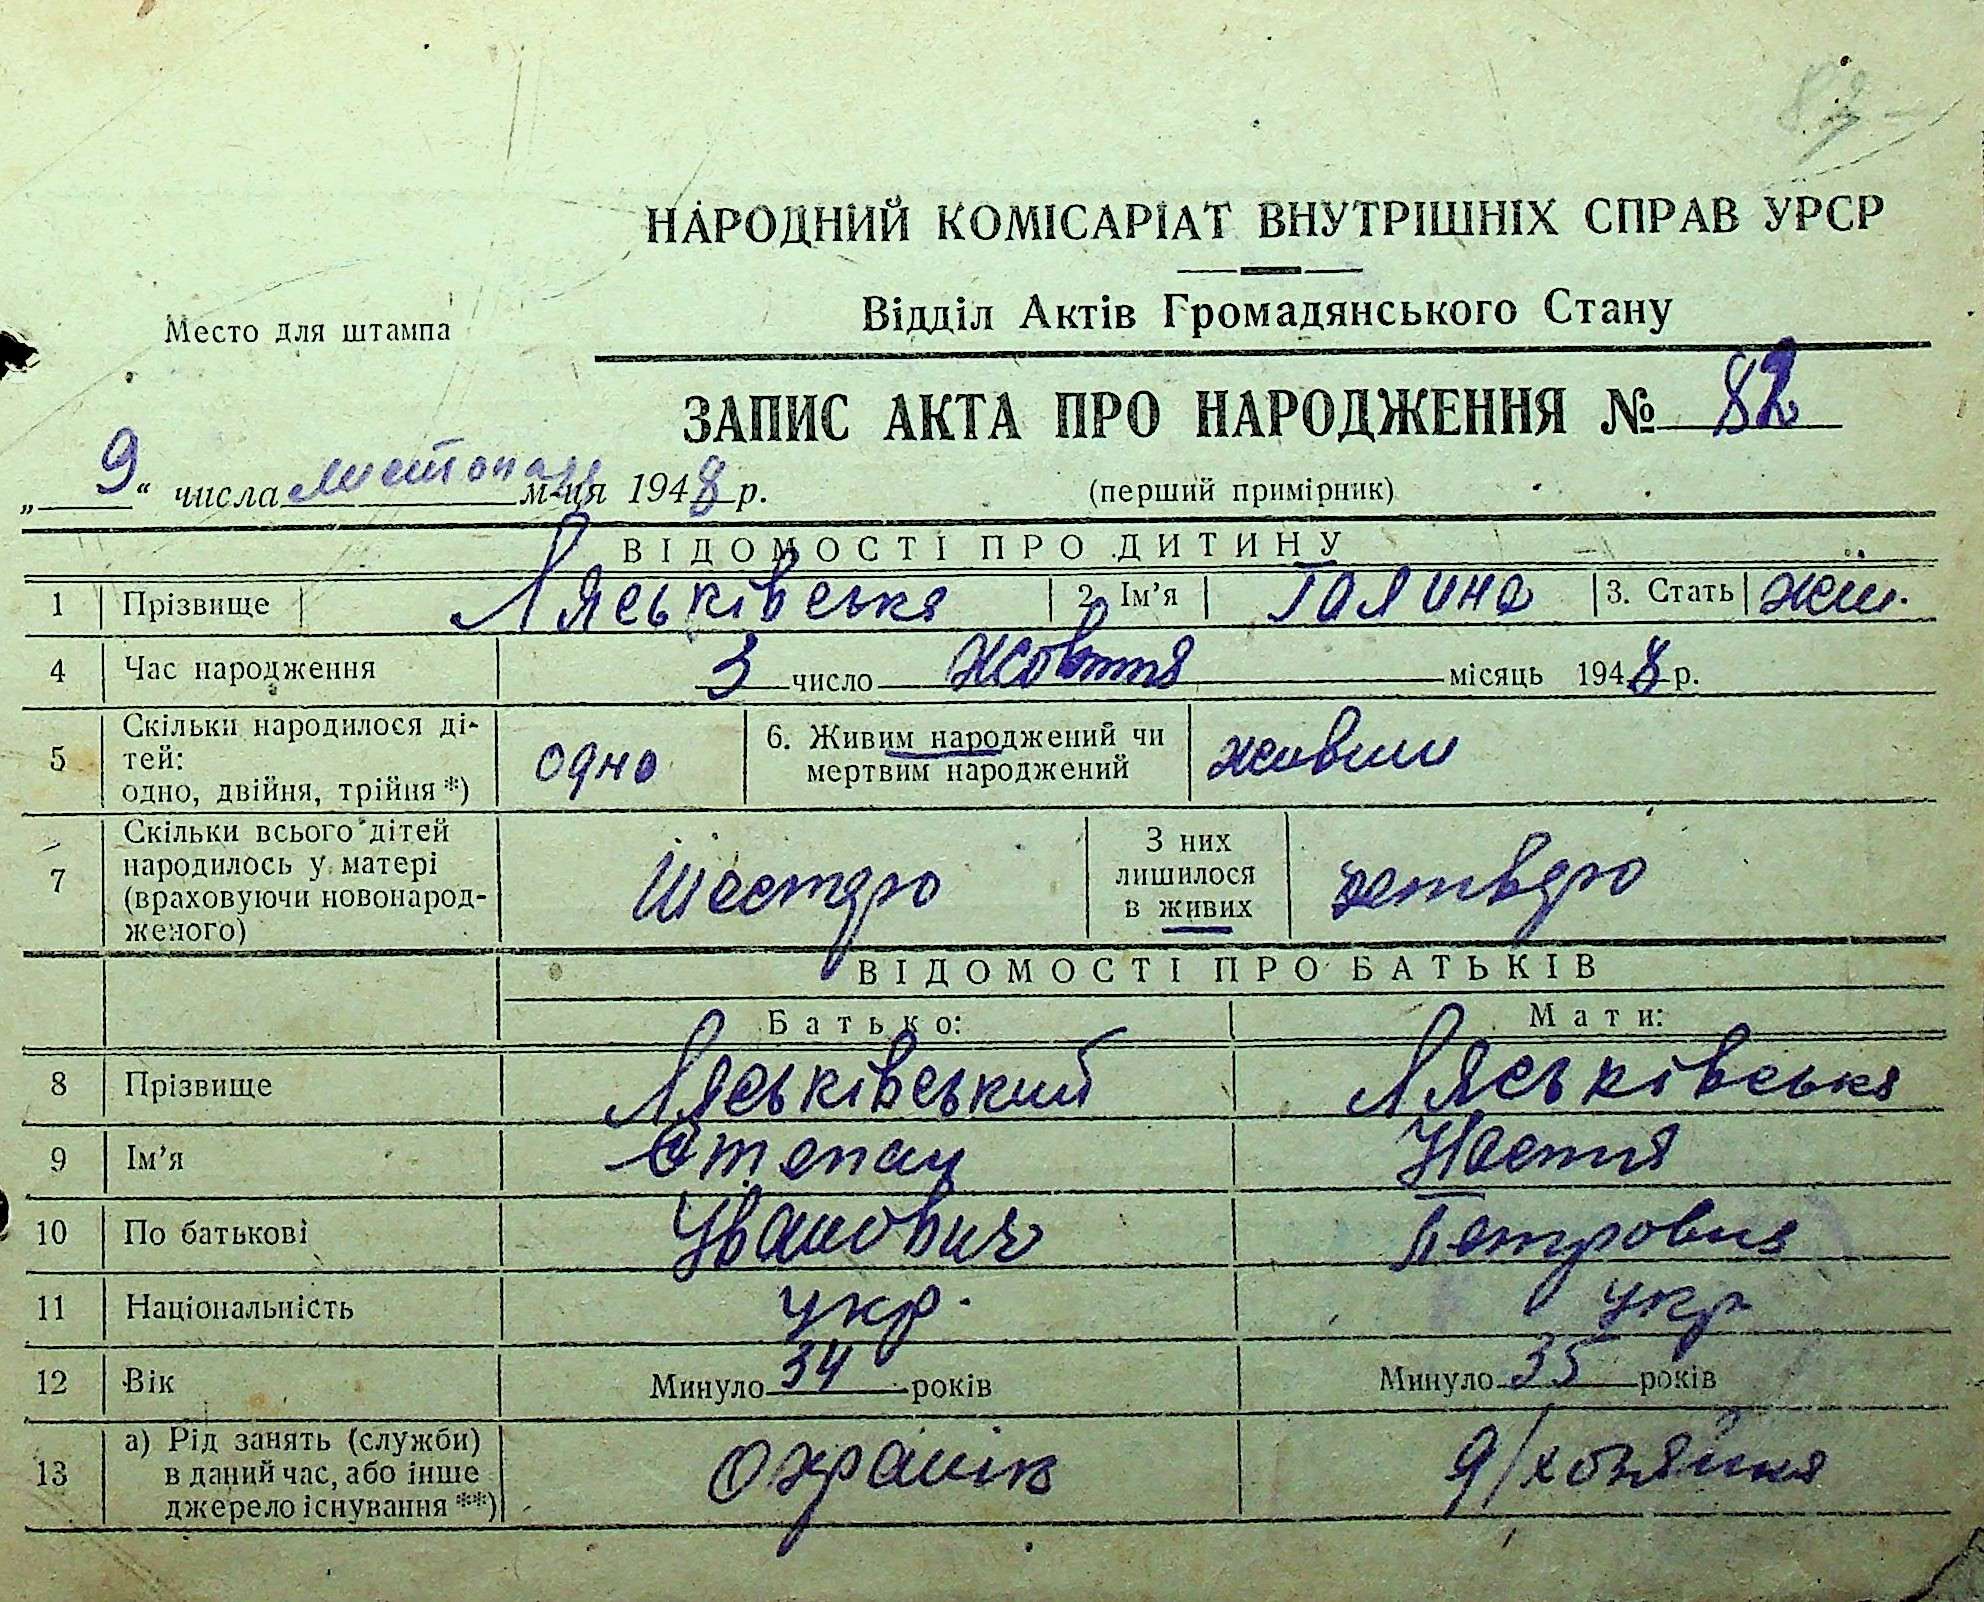 НАРОДНИЙ КОМІСАРІАТ ВНУТРІШНІХ СПРАВ УРСР
Відділ Актів Громадянського Стану
Место для штампа
ЗАПИС АКТА ПРО НАРОДЖЕННЯ № 82
„ 9 “ числа листопад м-ця 1948 р.
(перший примірник)
ВІДОМОСТІ ПРО ДИТИНУ
1 Прізвище Ляськівська 2. Ім’я Галина 3. Стать жін.
4 Час народження 3 число жовтня місяць 1948 р.
5 Скільки народилося ді-
тей:
одно, двійня, трійня *) одно 6. Живим народжений чи
мертвим народжений живим
7 Скільки всього дітей
народилось у матері
(враховуючи новонарод-
женого) шестеро З них
лишилося
в живих
ВІДОМОСТІ ПРО БАТЬКІВ
Батько: Мати:
8 Прізвище Ляськівський Ляськівська
9 Ім’я Степан Настя
10 По батькові Іванович Петровна
11 Національність укр. укр
12 Вік Минуло 34 років Минуло 35 років
13 а) Рід занять (служби)
в даний час, або інше
джерело існування **) охранік д/хозяйка